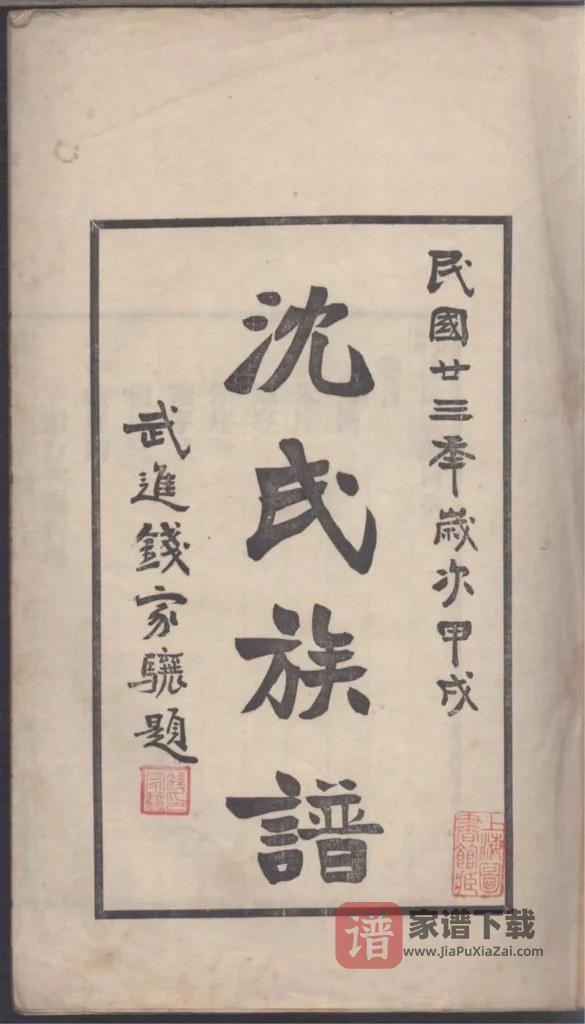 民國廿三年歲次甲戌
沈氏族譜
武進錢家驤題
上海圖
書館藏
谱
家谱下载
www.JiaPuXiaZai.com